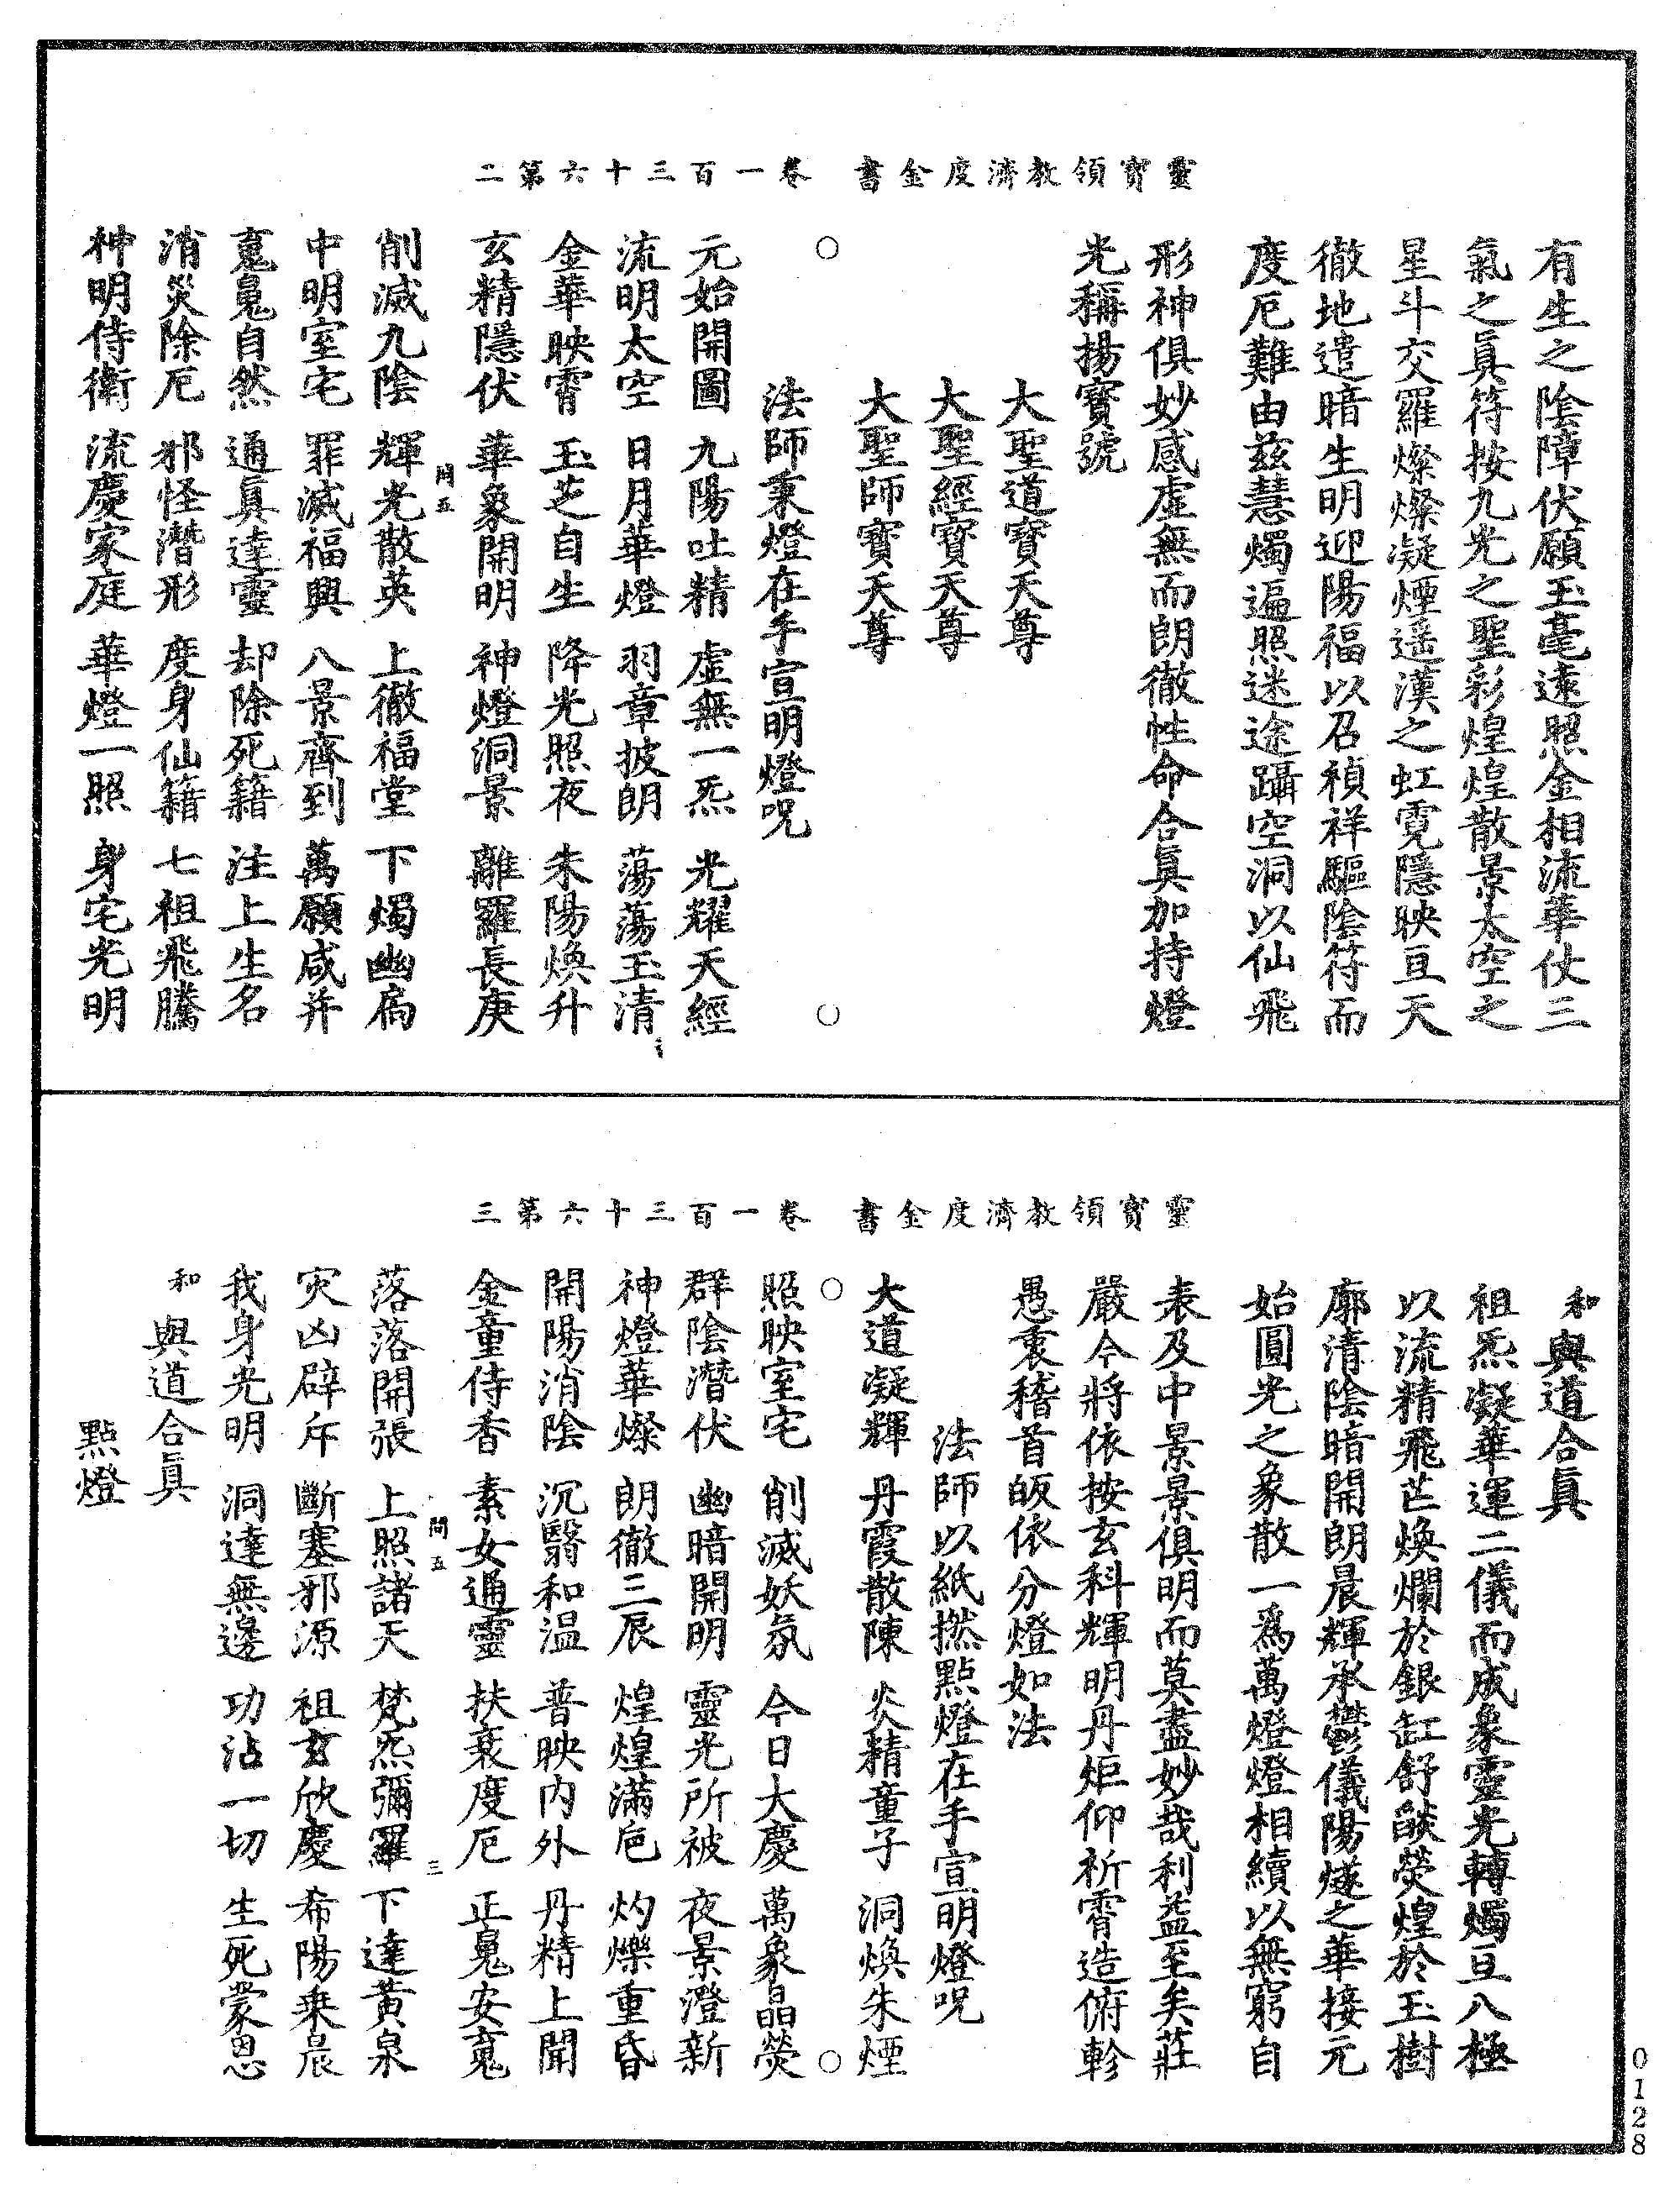 靈寶領教濟度金書　卷一百三十六第二
有生之陰障伏願玉毫遠照金相流華仗三
氣之真符按九光之聖彩煌煌散景太空之
星斗交羅燦燦凝煙遥漢之虹霓隱映亘天
徹地遣暗生明迎陽福以召禎祥驅陰符而
度厄難由兹慧燭遍照迷途躡空洞以仙飛
形神俱妙感虛無而朗徹性命合真加持燈
光稱揚寶號
大聖道寶天尊
大聖經寶天尊
大聖師寶天尊
○　○
法師秉燈在手宣明燈呪
元始開圖　九陽吐精　虛無一炁　光耀天經
流明太空　日月華燈　羽章披朗　蕩蕩玉清
金華映霄　玉芝自生　降光照夜　朱陽煥升
玄精隱伏　華象開明　神燈洞景　離羅長庚
問五
削滅九陰　輝光散英　上徹福堂　下燭幽扃
中明室宅　罪滅福興　八景齊到　萬願咸并
䰟魄自然　通真達靈　却除死籍　注上生名
消災除厄　邪怪潛形　度身仙籍　七祖飛騰
神明侍衛　流慶家庭　華燈一照　身宅光明
靈寶領教濟度金書　卷一百三十六第三
和　與道合真
祖炁凝華運二儀而成象靈光轉燭亘八極
以流精飛芒煥爛於銀缸舒燄熒煌於玉樹
廓清陰暗開朗晨輝承鬱儀陽燧之華接元
始圓光之象散一為萬燈燈相續以無窮自
表及中景景俱明而莫盡妙哉利益至矣莊
嚴今將依按玄科輝明丹炬仰祈霄造俯軫
愚衷稽首皈依分燈如法
法師以紙撚點燈在手宣明燈呪
大道凝輝　丹霞散陳　炎精童子　洞煥朱煙
○　○
照映室宅　削滅妖氛　今日大慶　萬象晶熒
群陰潛伏　幽暗開明　靈光所被　夜景澄新
神燈華燦　朗徹三辰　煌煌滿㐌　灼爍重昏
開陽消陰　沉翳和温　普映內外　丹精上聞
金童侍香　素女通靈　扶衰度厄　正魄安䰟
問五　三
落落開張　上照諸天　梵炁彌羅　下達黃泉
灾凶辟斥　斷塞邪源　祖玄欣慶　希陽乘晨
我身光明　洞達無邊　功沾一切　生死蒙恩
和　與道合真
點燈
0128